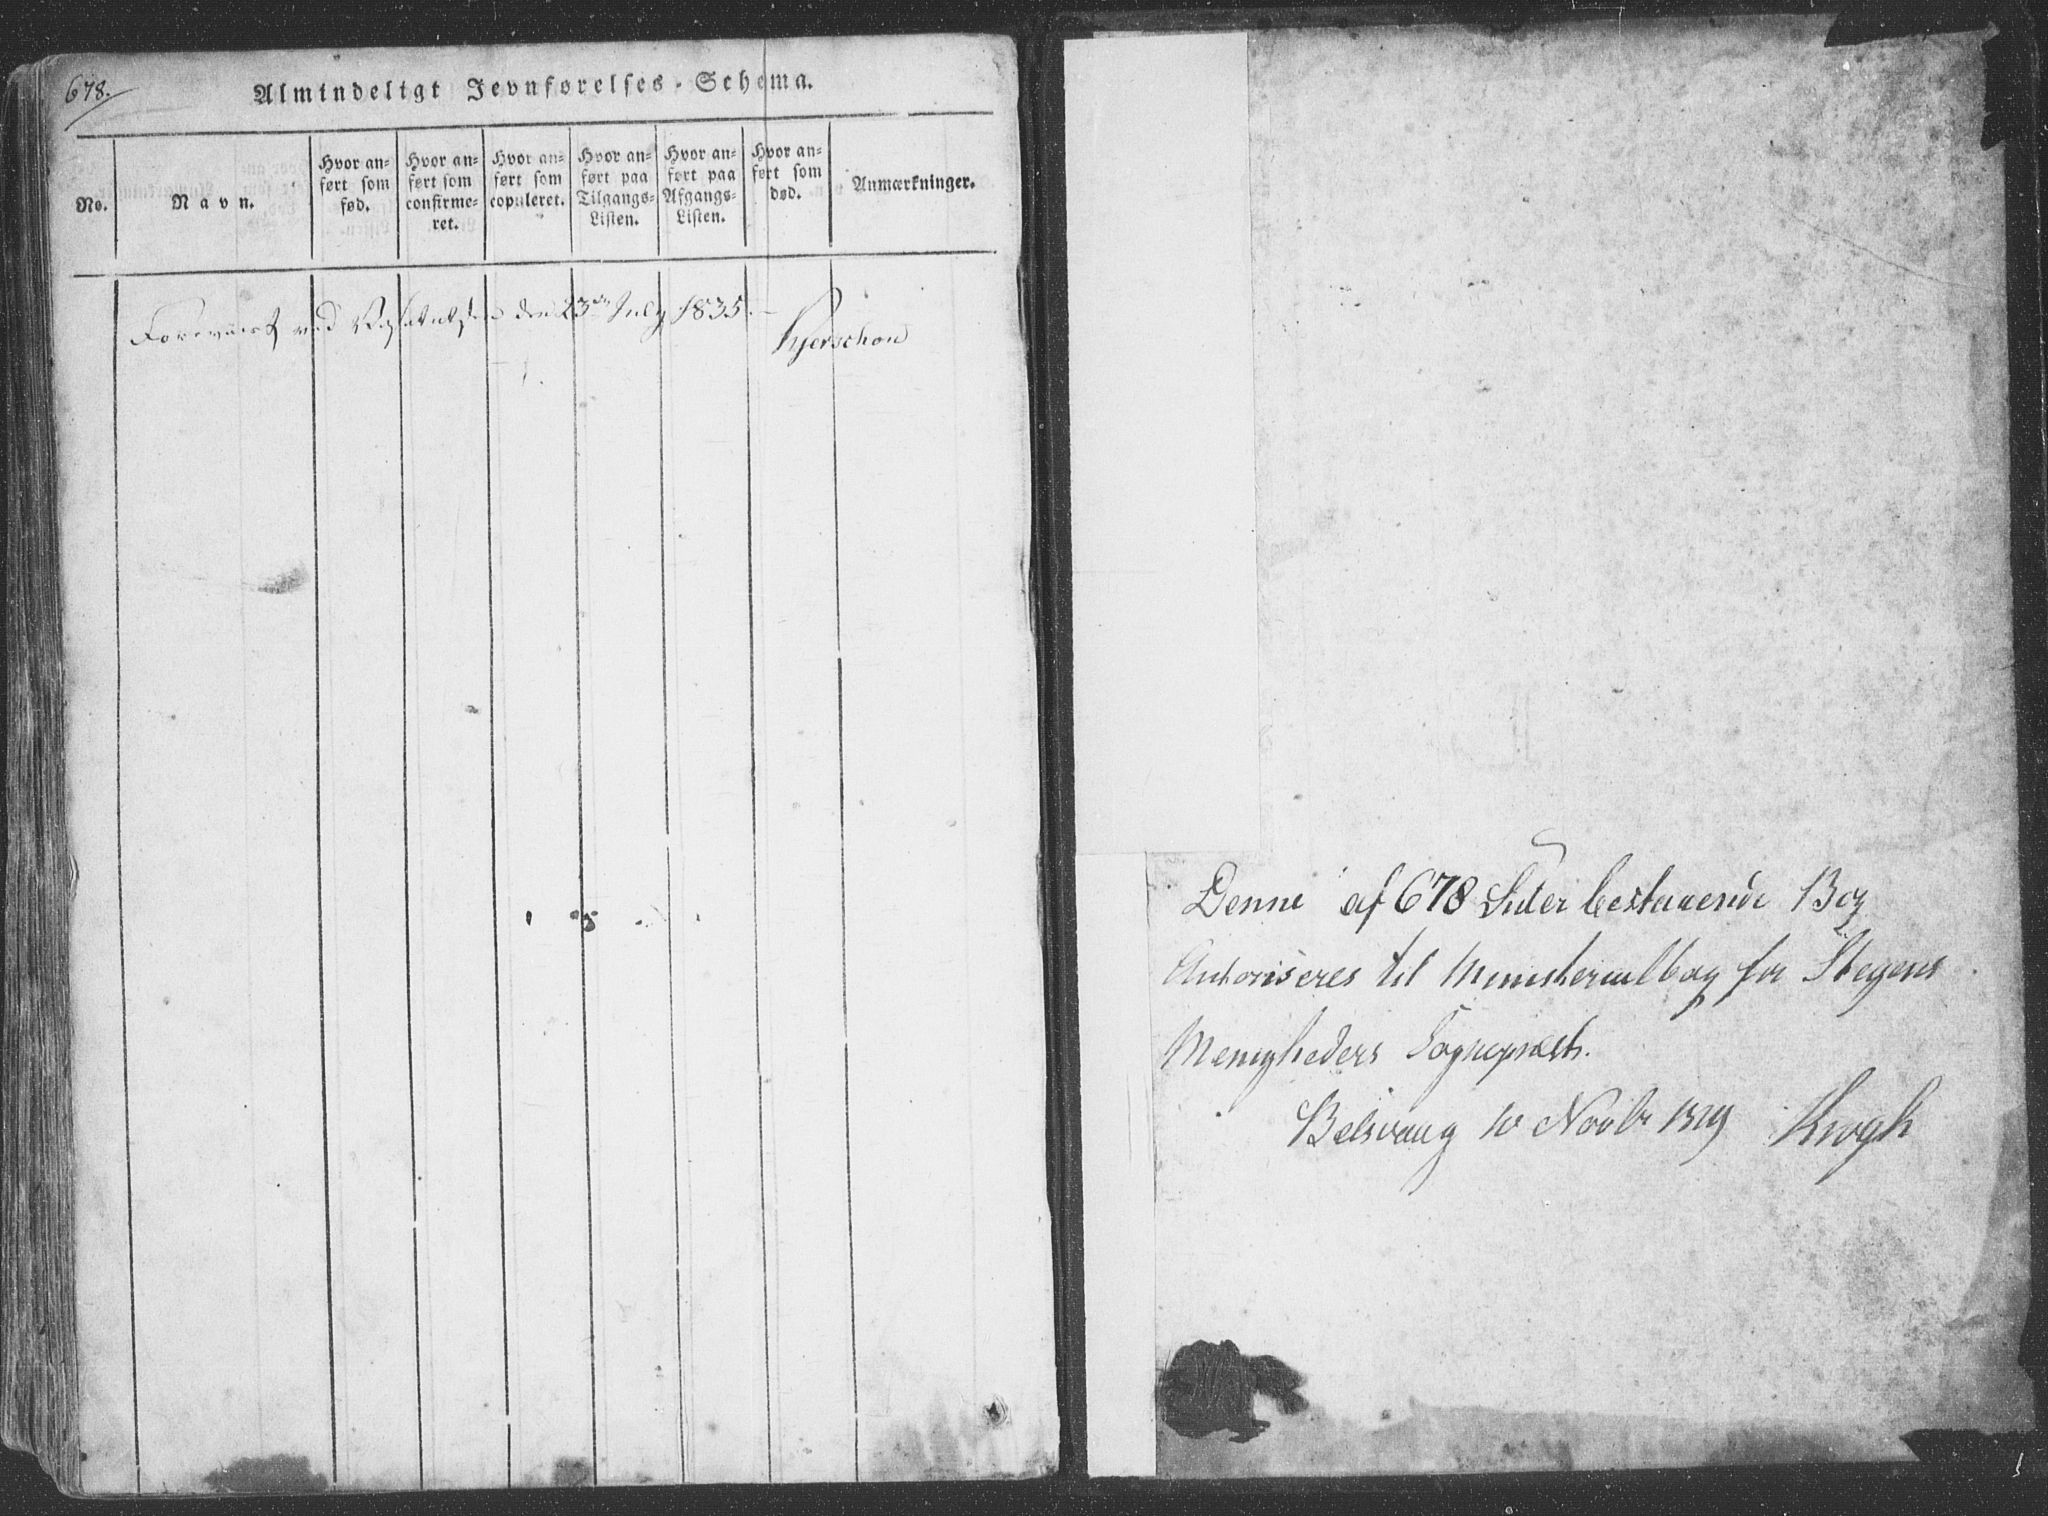 678.
Almindeligt Jevnførelses-Schema.
No.
Navn.
Hvor an-
ført som
fød.
Hvor an-
ført som
confirme-
ret.
Hvor an-
ført som
copuleret.
Hvor an-
ført paa
Tilgangs-
Listen.
Hvor an-
ført paa
Afgangs-
Listen.
Hvor an-
ført som
død.
Anmærkninger.
Foreviist ved Visitatsen den 23de July 1835. -
Kjerschow
Denne af 678 Sider bestaaende Bog
Autoriseres til Ministerialbog for Stegens
Menigheders Sognepræst.
Belsvaag 10 Novbr 1819 Krogh